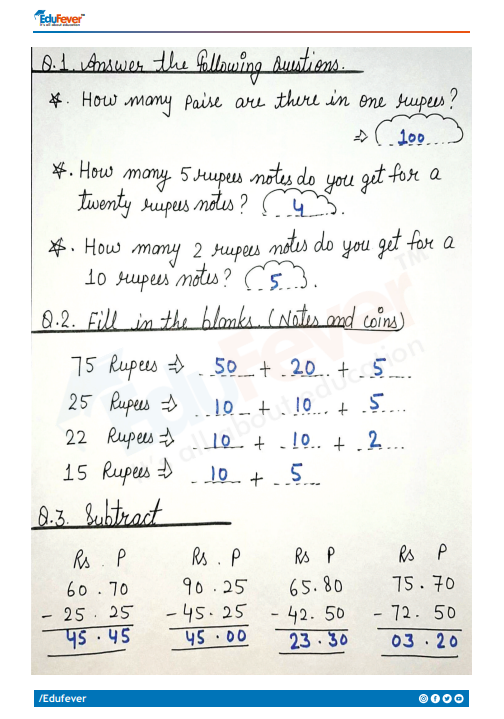 EduFever™
It's all about education
Q.1. Answer the following Questions.
☆. How many paise are there in one rupees?
⇒ 100
☆. How many 5 rupees notes do you get for a
twenty rupees notes? 4.
☆. How many 2 rupees notes do you get for a
10 rupees notes? 5.
Q.2. Fill in the blanks. (Notes and coins)
75 Rupees ⇒ 50 + 20 + 5
25 Rupees ⇒ 10 + 10 + 5
22 Rupees ⇒ 10 + 10 + 2
15 Rupees ⇒ 10 + 5
EduFever™
all about education
Q.3. Subtract
Rs . P Rs . P Rs P Rs P
60.70 90.25 65.80 75.70
- 25.25 - 45.25 - 42.50 - 72.50
45.45 45.00 23.30 03.20
/Edufever